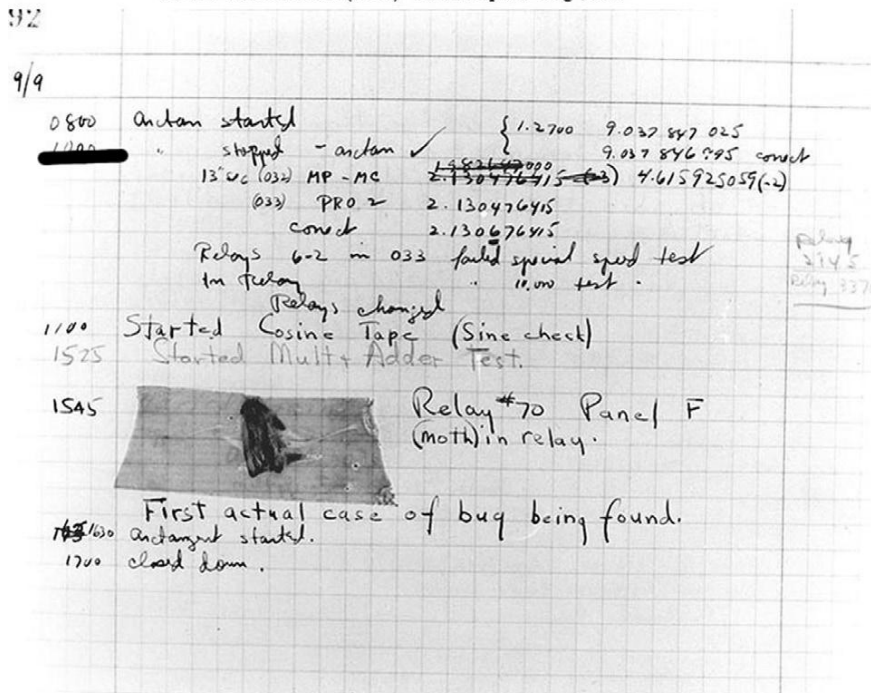 92
9/9
0800 antan started { 1.2700 9.037 847 025
" stopped - antan ✓ 9.037 846 995 conect
13"uc (032) MP - MC 2.130476415 (-3) 4.615925059(-2)
(033) PRO 2 2.130476415
conect 2.130676415
Relays 6-2 in 033 failed special speed test
In Relay " 10.000 test .
Relays changed
Relay
2145
Relay 337
1100 Started Cosine Tape (Sine check)
1525 Started Mult + Adder Test.
1545 Relay #70 Panel F
(moth) in relay.
First actual case of bug being found.
1630 arctangent started.
1700 closed down.